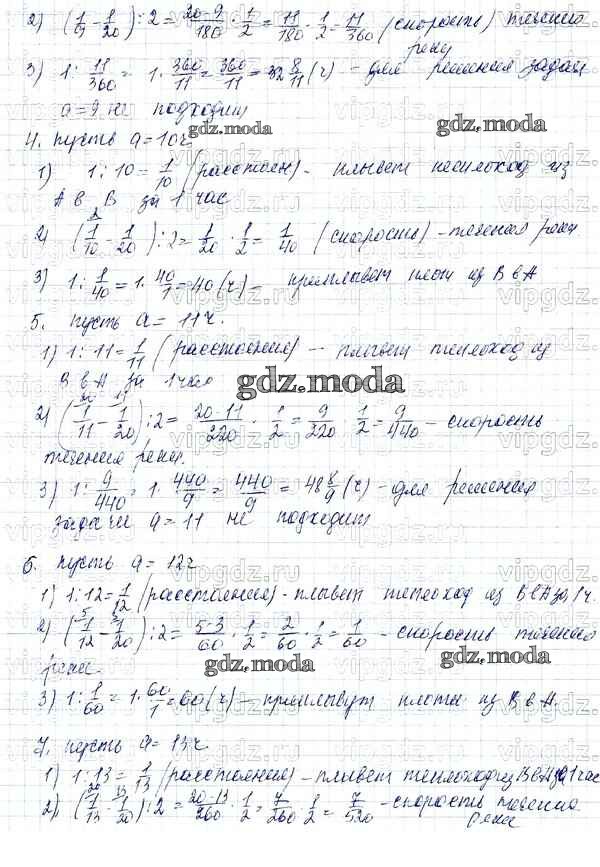 2) (1/9 - 1/20) : 2 = 20-9/180 · 1/2 = 11/180 · 1/2 = 11/360 (скорость) течения
реки
3) 1 : 11/360 = 1 · 360/11 = 360/11 = 32 8/11 (ч) - для решения задачи
a = 9 не подходит
4. пусть a = 10 ч
1) 1 : 10 = 1/10 (расстоян) - плывет теплоход из
А в В за 1 час
2) (1/10 - 1/20) : 2 = 1/20 · 1/2 = 1/40 (скорость) - течения реки
3) 1 : 1/40 = 1 · 40/1 = 40 (ч) - приплывет плот из В в А
5. пусть a = 11 ч.
1) 1 : 11 = 1/11 (расстояния) - плывет теплоход из
В в А за 1 час
2) (1/11 - 1/20) : 2 = 20-11/220 · 1/2 = 9/220 · 1/2 = 9/440 - скорость
течения реки.
3) 1 : 9/440 = 1 · 440/9 = 440/9 = 48 8/9 (ч) - для решения
задачи a = 11 не подходит
6. пусть a = 12 ч
1) 1 : 12 = 1/12 (расстояния) - плывет теплоход из В в А за 1 ч.
2) (1/12 - 1/20) : 2 = 5-3/60 · 1/2 = 2/60 · 1/2 = 1/60 - скорость течения
реки.
3) 1 : 1/60 = 1 · 60/1 = 60 (ч) - приплывут плоты из В в А.
7. пусть a = 13 ч
1) 1 : 13 = 1/13 (расстояния) - плывет теплоход из В в А за 1 час
2) (1/13 - 1/20) : 2 = 20-13/260 · 1/2 = 7/260 · 1/2 = 7/520 - скорость течения
реки
gdz.moda
gdz.moda
gdz.moda
gdz.moda
gdz.moda
vipgdz.ru